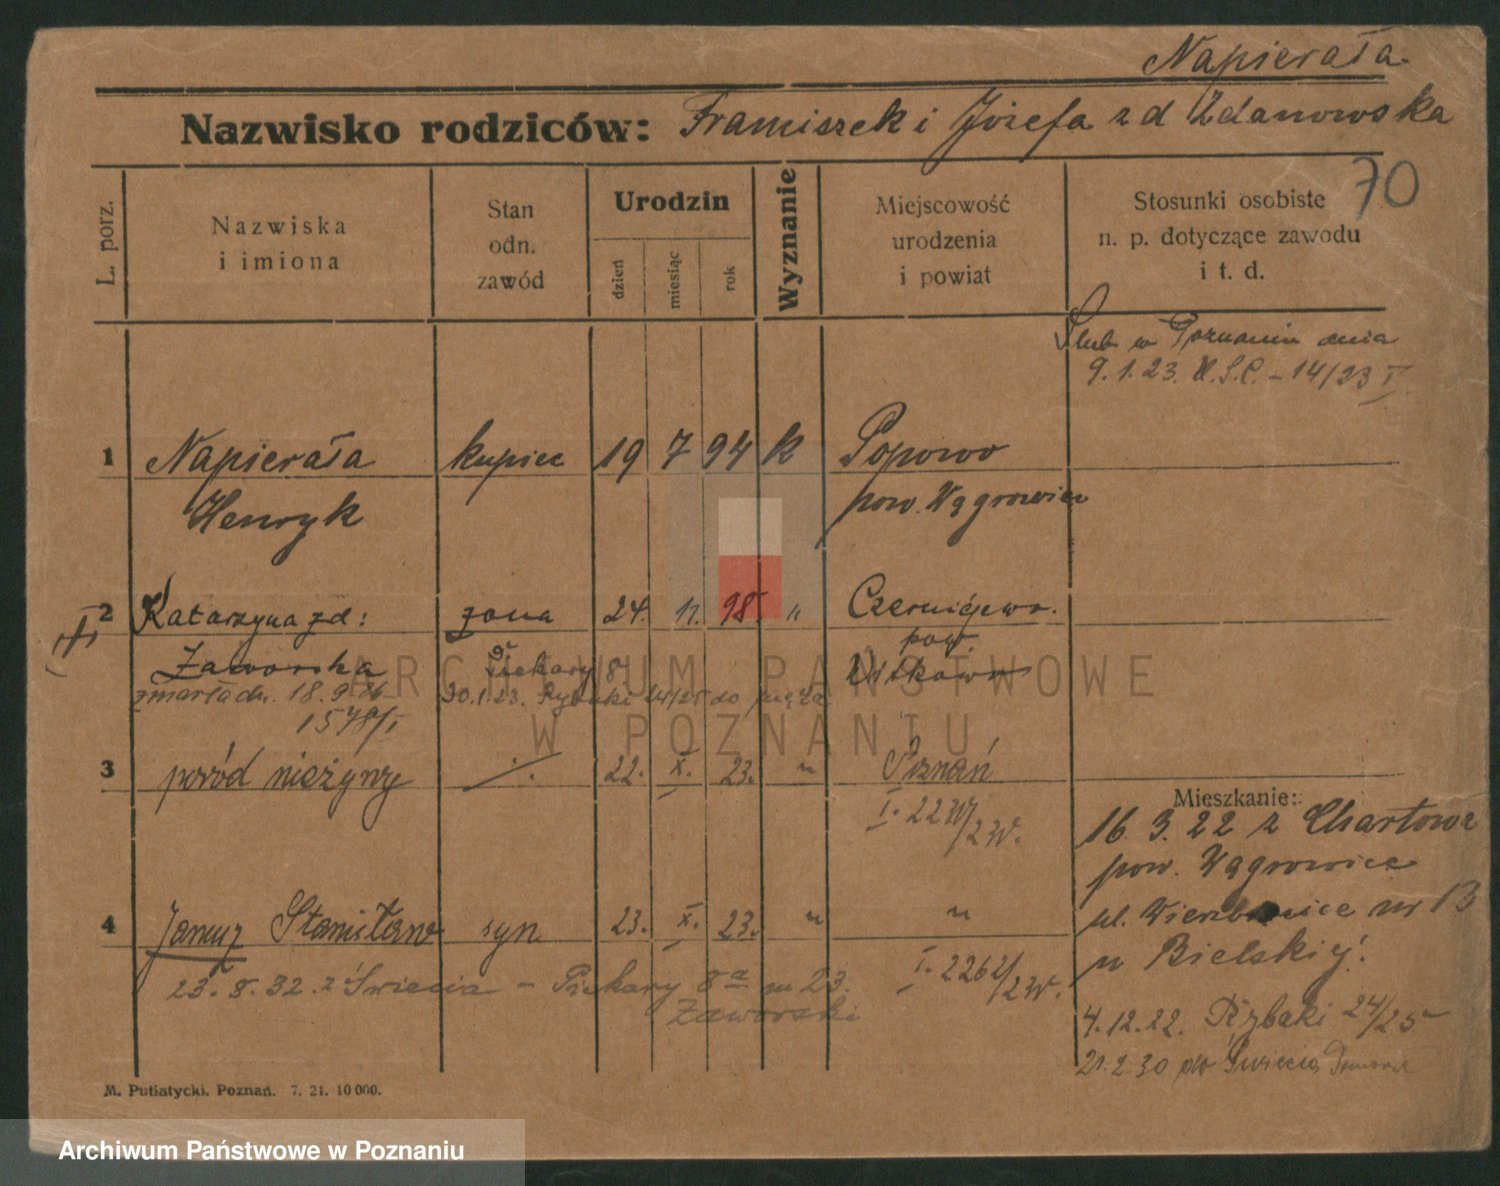 Napierała
Nazwisko rodziców: Franciszek i Józefa z d Zdanowska
70
L. porz.
Nazwiska
i imiona
Stan
odn.
zawód
Urodzin
dzień
miesiąc
rok
Wyznanie
Miejscowość
urodzenia
i powiat
Stosunki osobiste
n. p. dotyczące zawodu
i t. d.
Ślub w Poznaniu dnia
9.1.23. U.S.C. - 14/23 I
1 Napierała kupiec 19 7 94 k Popowo
Henryk pow. Wągrowiec
2 Katarzyna zd: żona 24. 11. 98. " Czerniejewo.
pow.
Zaworska Piekary 8 Witkowo
zmarła dn. 18.9.26 30.1.23. Rybaki 24/25 do męża
1578/I
3 poród nieżywy ./. 22. X. 23. " Poznań
I. 2211/23.
Mieszkanie:
16.3.22 z Chartowa
pow. Wągrowiec
ul. Wierzbięcice nr 13
u Bielskiej.
4 Janusz Stanisław syn 23. X. 23. " "
I. 2262/23.
23.8.32. z Świecia - Piekary 8a m 23.
Zaworski
4.12.22. Rybaki 24/25
21.2.30 do Świecia
M. Putiatycki. Poznań. 7. 21. 10 000.
ARCHIWUM PAŃSTWOWE
W POZNANIU
Archiwum Państwowe w Poznaniu